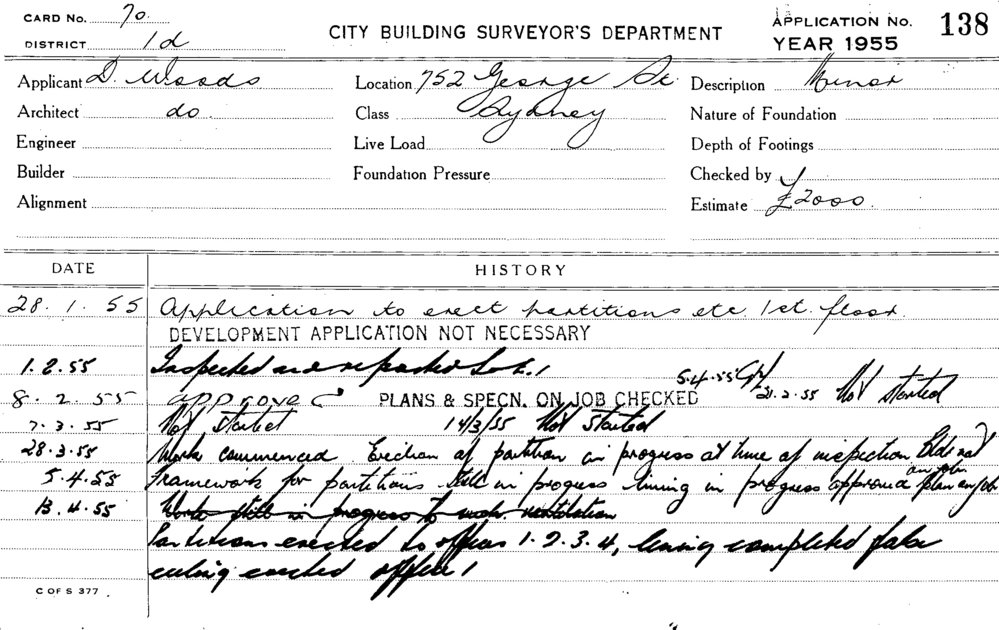 CARD No. 70.
DISTRICT 1d
CITY BUILDING SURVEYOR'S DEPARTMENT
APPLICATION No. 138
YEAR 1955
Applicant D. Woods Location 752 George St. Description Minor
Architect do. Class Sydney Nature of Foundation
Engineer Live Load Depth of Footings
Builder Foundation Pressure Checked by
Alignment Estimate £2000.
DATE HISTORY
28. 1. 55 Application to erect partitions etc. 1st. floor.
DEVELOPMENT APPLICATION NOT NECESSARY
1.2.55 Inspected and reported
5.4.55
8. 2. 55 approved PLANS & SPECN. ON JOB CHECKED 21.2.55 Not started
7.3.55 Not started 14/3/55 Not started
28.3.55 Work commenced Erection of partition in progress at time of inspection Bldr not
on job
5.4.55 Framework for partitions still in progress lining in progress approved plan on job
13.4.55 Work still in progress ventilation
Partitions erected to offices 1.2.3.4, lining completed false
ceiling erected office 1
C OF S 377